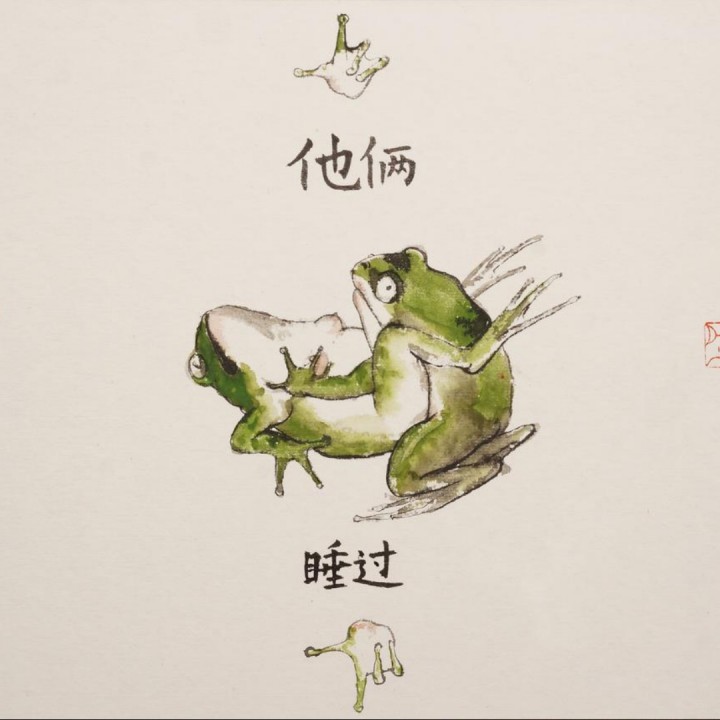 他俩
睡过